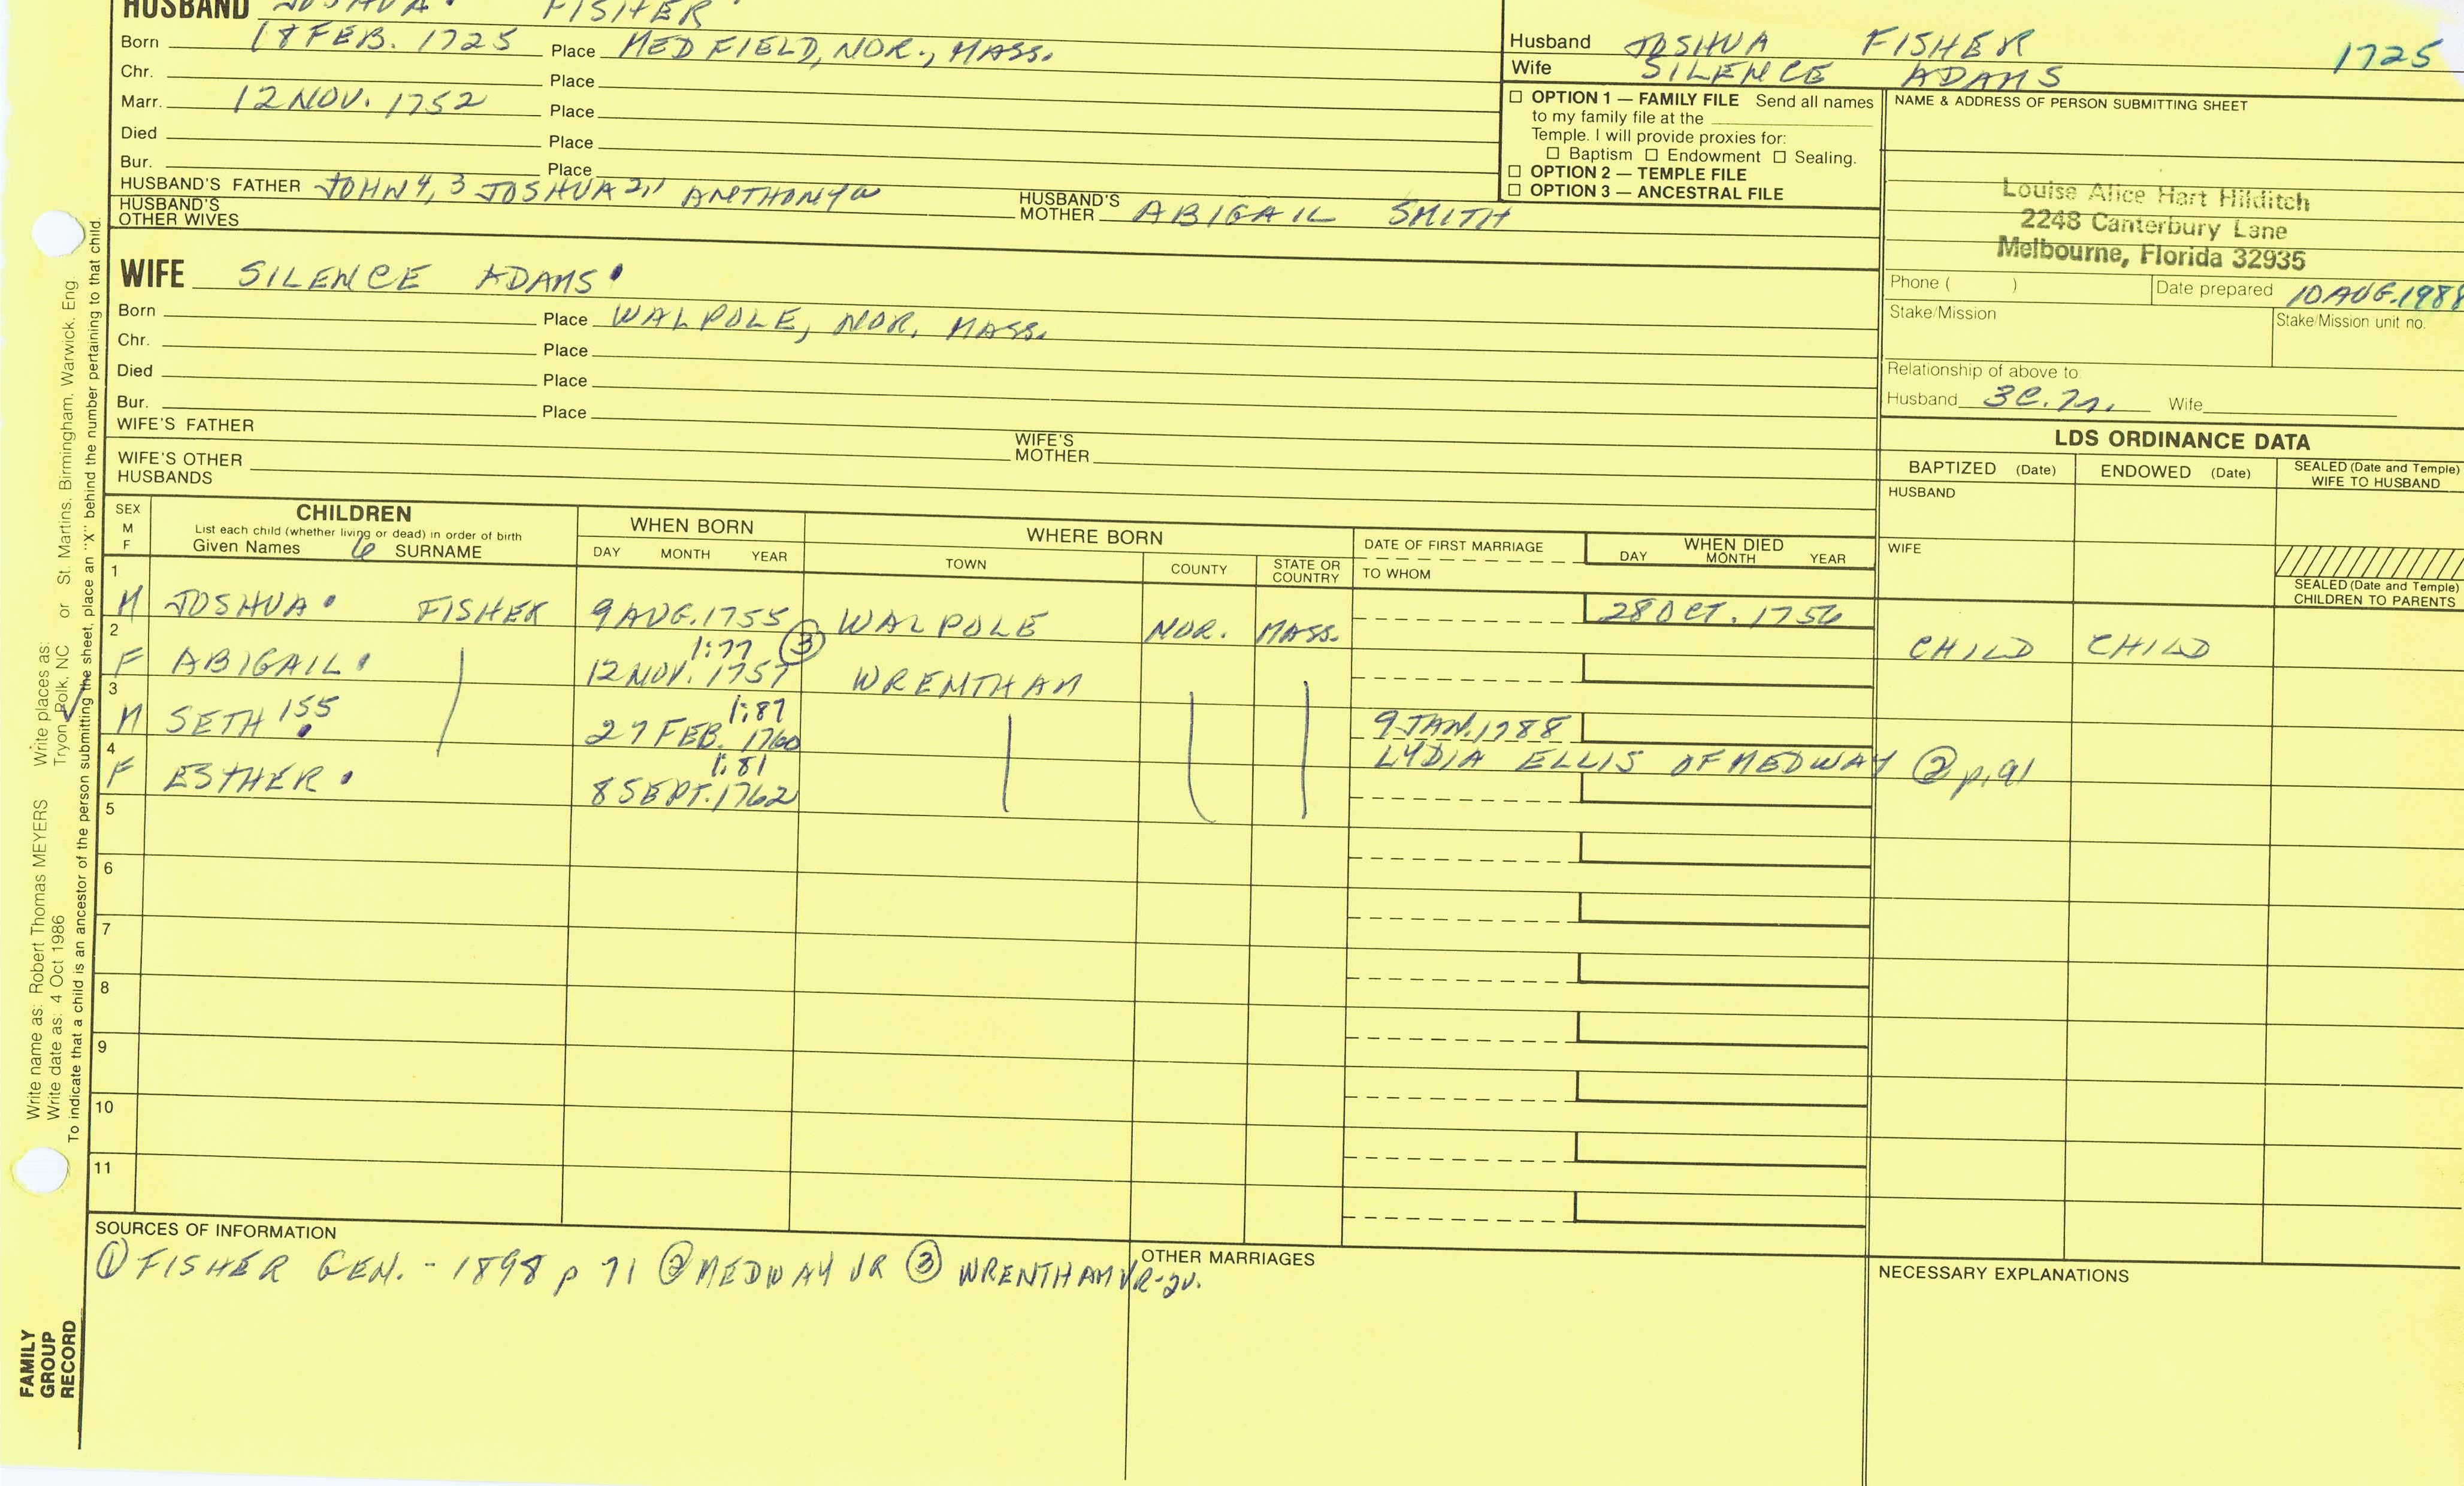 HUSBAND JOSHUA FISHER
Born 18 FEB. 1725 Place MEDFIELD, NOR., MASS.
Chr. Place
Marr. 12 NOV. 1752 Place
Died Place
Bur. Place
HUSBAND'S FATHER JOHN 4, 3 JOSHUA 2,1 ANTHONY HUSBAND'S MOTHER ABIGAIL SMITH
HUSBAND'S OTHER WIVES
Husband JOSHUA FISHER 1725
Wife SILENCE ADAMS
☐ OPTION 1 — FAMILY FILE Send all names
to my family file at the
Temple. I will provide proxies for:
☐ Baptism ☐ Endowment ☐ Sealing.
☐ OPTION 2 — TEMPLE FILE
☐ OPTION 3 — ANCESTRAL FILE
NAME & ADDRESS OF PERSON SUBMITTING SHEET
Louise Alice Hart Hilditch
2248 Canterbury Lane
Melbourne, Florida 32935
Phone ( ) Date prepared 10 AUG. 1988
Stake/Mission Stake/Mission unit no.
Relationship of above to:
Husband 3C. Wife
WIFE SILENCE ADAMS
Born Place WALPOLE, NOR. MASS.
Chr. Place
Died Place
Bur. Place
WIFE'S FATHER WIFE'S MOTHER
WIFE'S OTHER HUSBANDS
LDS ORDINANCE DATA
BAPTIZED (Date) ENDOWED (Date) SEALED (Date and Temple) WIFE TO HUSBAND
HUSBAND
WIFE
SEALED (Date and Temple) CHILDREN TO PARENTS
SEX M F
CHILDREN
List each child (whether living or dead) in order of birth
Given Names 6 SURNAME
WHEN BORN
DAY MONTH YEAR
WHERE BORN
TOWN COUNTY STATE OR COUNTRY
DATE OF FIRST MARRIAGE
TO WHOM
WHEN DIED
DAY MONTH YEAR
1 M JOSHUA FISHER 9 AUG. 1755 WALPOLE NOR. MASS. 28 OCT. 1756 CHILD CHILD
2 F ABIGAIL 1:77 ③ 12 NOV. 1757 WRENTHAM
3 M SETH 155 1:87 27 FEB. 1760 9 JAN. 1788
LYDIA ELLIS OF MEDWAY ② p. 91
4 F ESTHER 1:81 8 SEPT. 1762
5
6
7
8
9
10
11
SOURCES OF INFORMATION
① FISHER GEN. - 1898 p 71 ② MEDWAY VR ③ WRENTHAM VR-2v.
OTHER MARRIAGES
NECESSARY EXPLANATIONS
Write name as: Robert Thomas MEYERS Write places as:
Write date as: 4 Oct 1986 Tryon, Polk, NC or St. Martins, Birmingham, Warwick, Eng
To indicate that a child is an ancestor of the person submitting the sheet, place an "X" behind the number pertaining to that child.
FAMILY
GROUP
RECORD